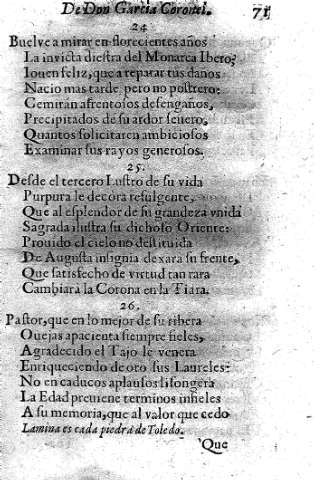 De Don Garcia Coronel. 71
24
Buelve a mirar en florecientes años
La invicta diestra del Monarca Ibero,
Iouen feliz, que a reparar tus daños
Nacio mas tarde, pero no postrero:
Gemiràn afrentosos desengaños,
Precipitados de su ardor seuero,
Quantos solicitaren ambiciosos
Examinar sus rayos generosos.
25.
Desde el tercero Lustro de su vida
Purpura le decora refulgente,
Que al esplendor de su grandeza vnida
Sagrada ilustra su dichoso Oriente:
Prouido el cielo no destituida
De Augusta insignia dexara su frente,
Que satisfecho de virtud tan rara
Cambiarà la Corona en la Tiara.
26.
Pastor, que en lo mejor de su ribera
Ouejas apacienta siempre fieles,
Agradecido el Tajo le venera
Enriqueciendo de oro sus Laureles:
No en caducos aplausos lisongera
La Edad preuiene terminos infieles
A su memoria, que al valor que cedo
Lamina es cada piedra de Toledo.
Que